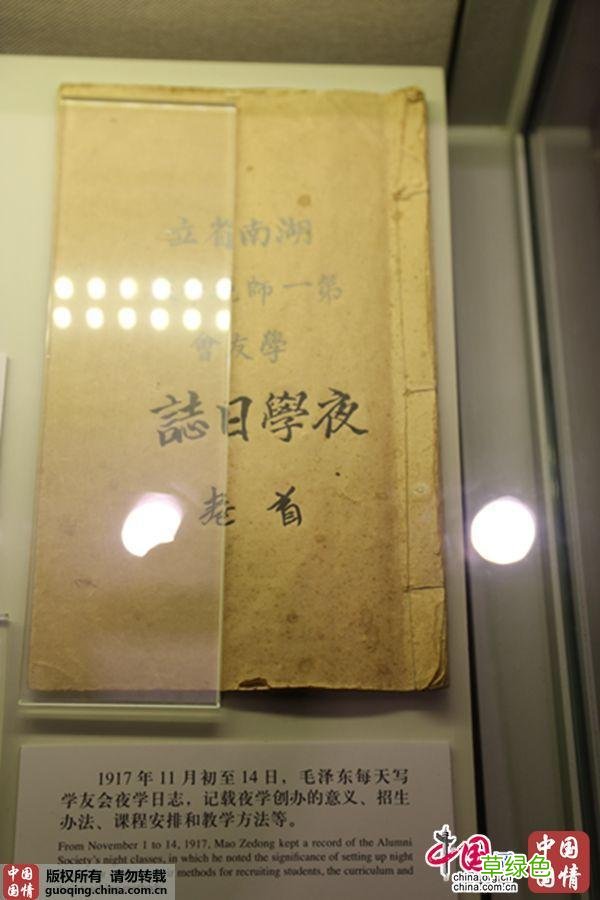 中国国情
湖南省立
第一師
學友會
夜學日誌
首卷
1917 年 11 月初至 14 日，毛泽东每天写
学友会夜学日志，记载夜学创办的意义、招生
办法、课程安排和教学方法等。
From November 1 to 14, 1917, Mao Zedong kept a record of the Alumni
Society's night classes, in which he noted the significance of setting up night
methods for recruiting students, the curriculum and
中国国情
版权所有 请勿转载
guoqing.china.com.cn
中国
草绿色
china.org.cn
china.com.cn
中国国情